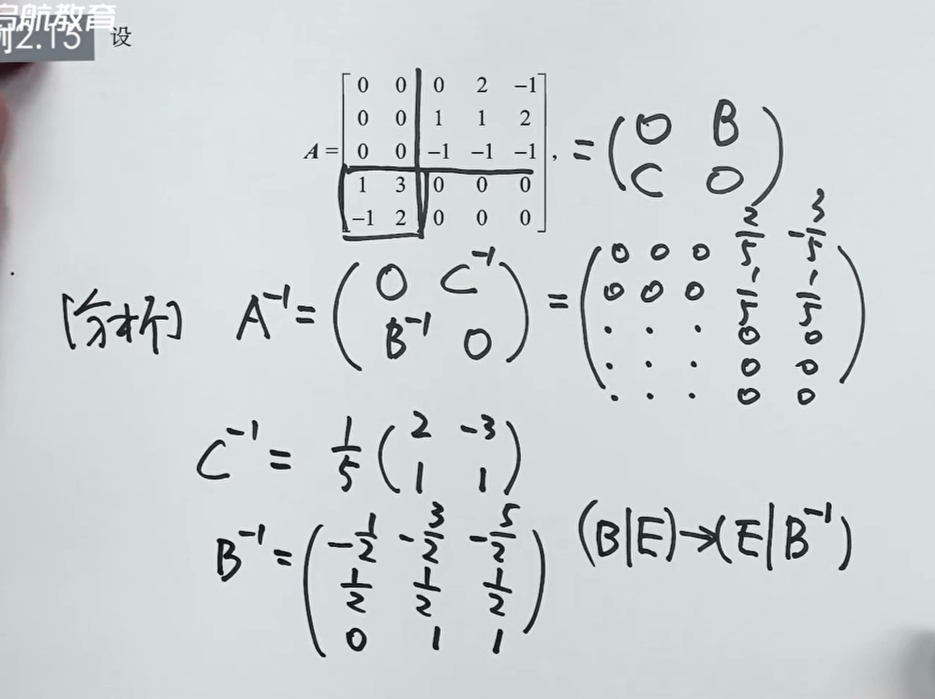 启航教育
例2.15 设
A = [0 0 0 2 −1
0 0 1 1 2
0 0 −1 −1 −1
1 3 0 0 0
−1 2 0 0 0], = (O B
C O)
[分析] A⁻¹ = (O C⁻¹
B⁻¹ O) = (0 0 0 2/5 -3/5
0 0 0 1/5 1/5
· · · 0 0
· · · 0 0
· · · 0 0)
C⁻¹ = 1/5 (2 -3
1 1)
B⁻¹ = (-1/2 -3/2 -5/2
1/2 1/2 1/2
0 1 1) (B|E)→(E|B⁻¹)